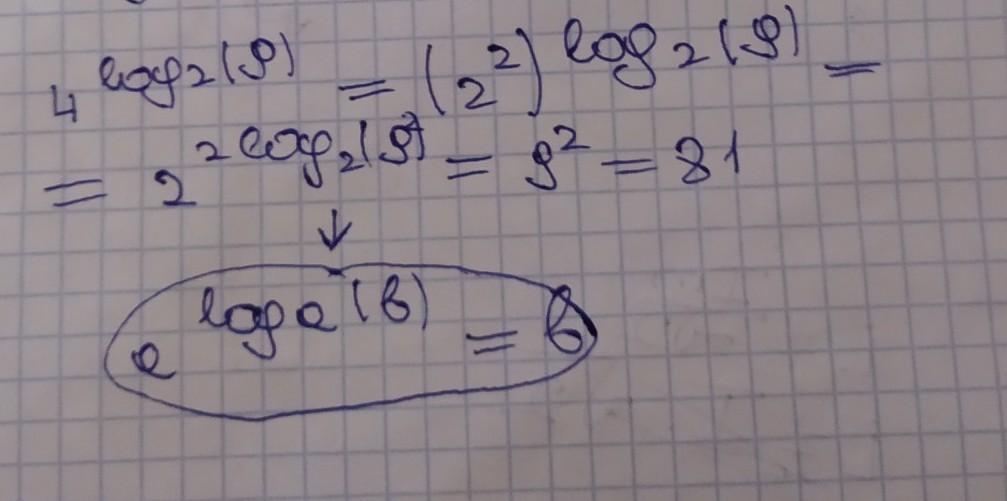 4^log₂(9) = (2²)^log₂(9) =
= 2^2log₂(9) = 9² = 81
↓
a^logₐ(b) = b